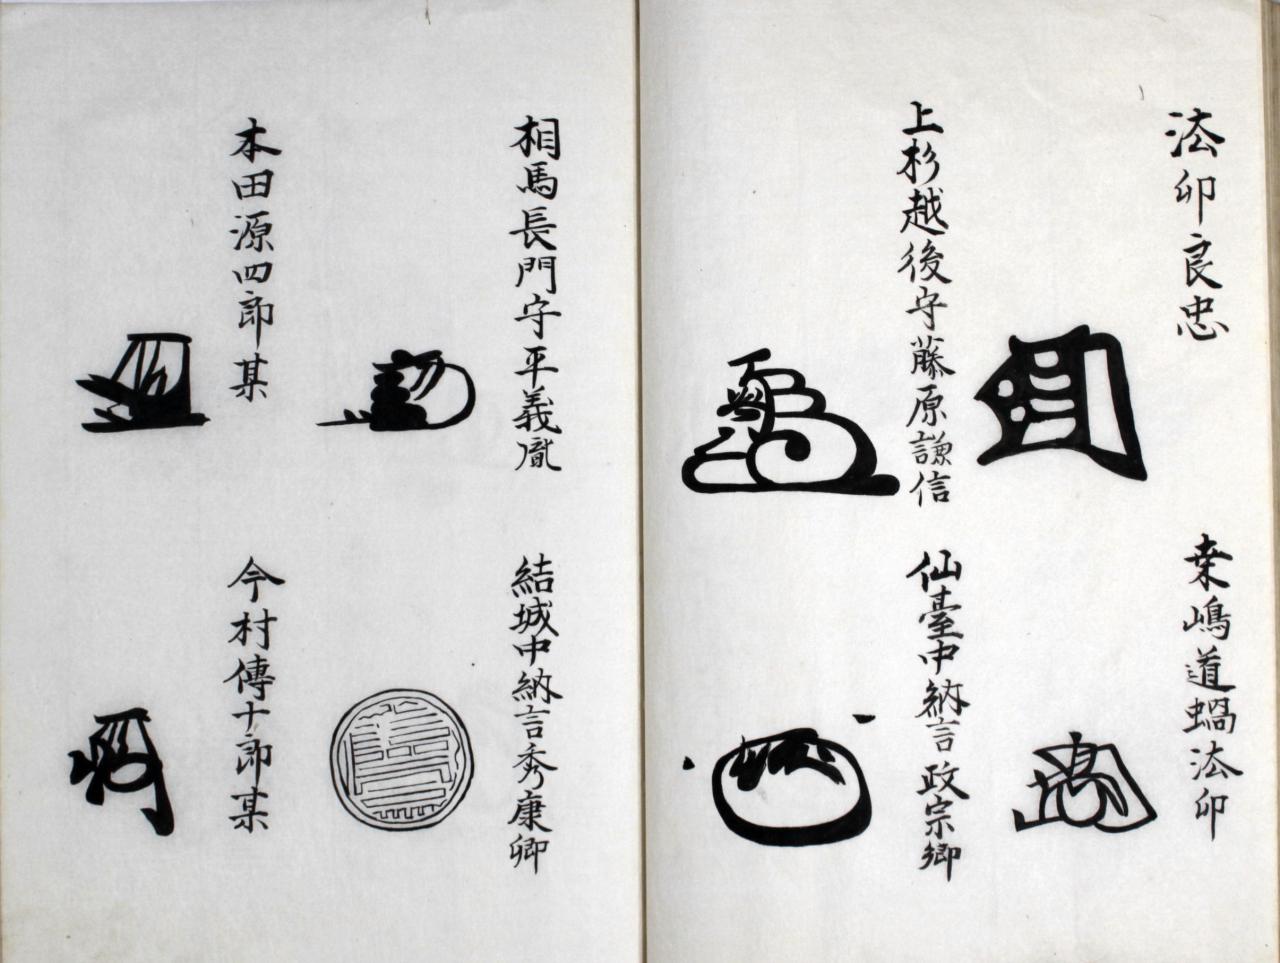 法卯良忠
桒嶋道蝸法卯
上杉越後守藤原謙信
仙臺中納言政宗卿
相馬長門守平義胤
結城中納言秀康卿
本田源四郎某
今村傳十郎某